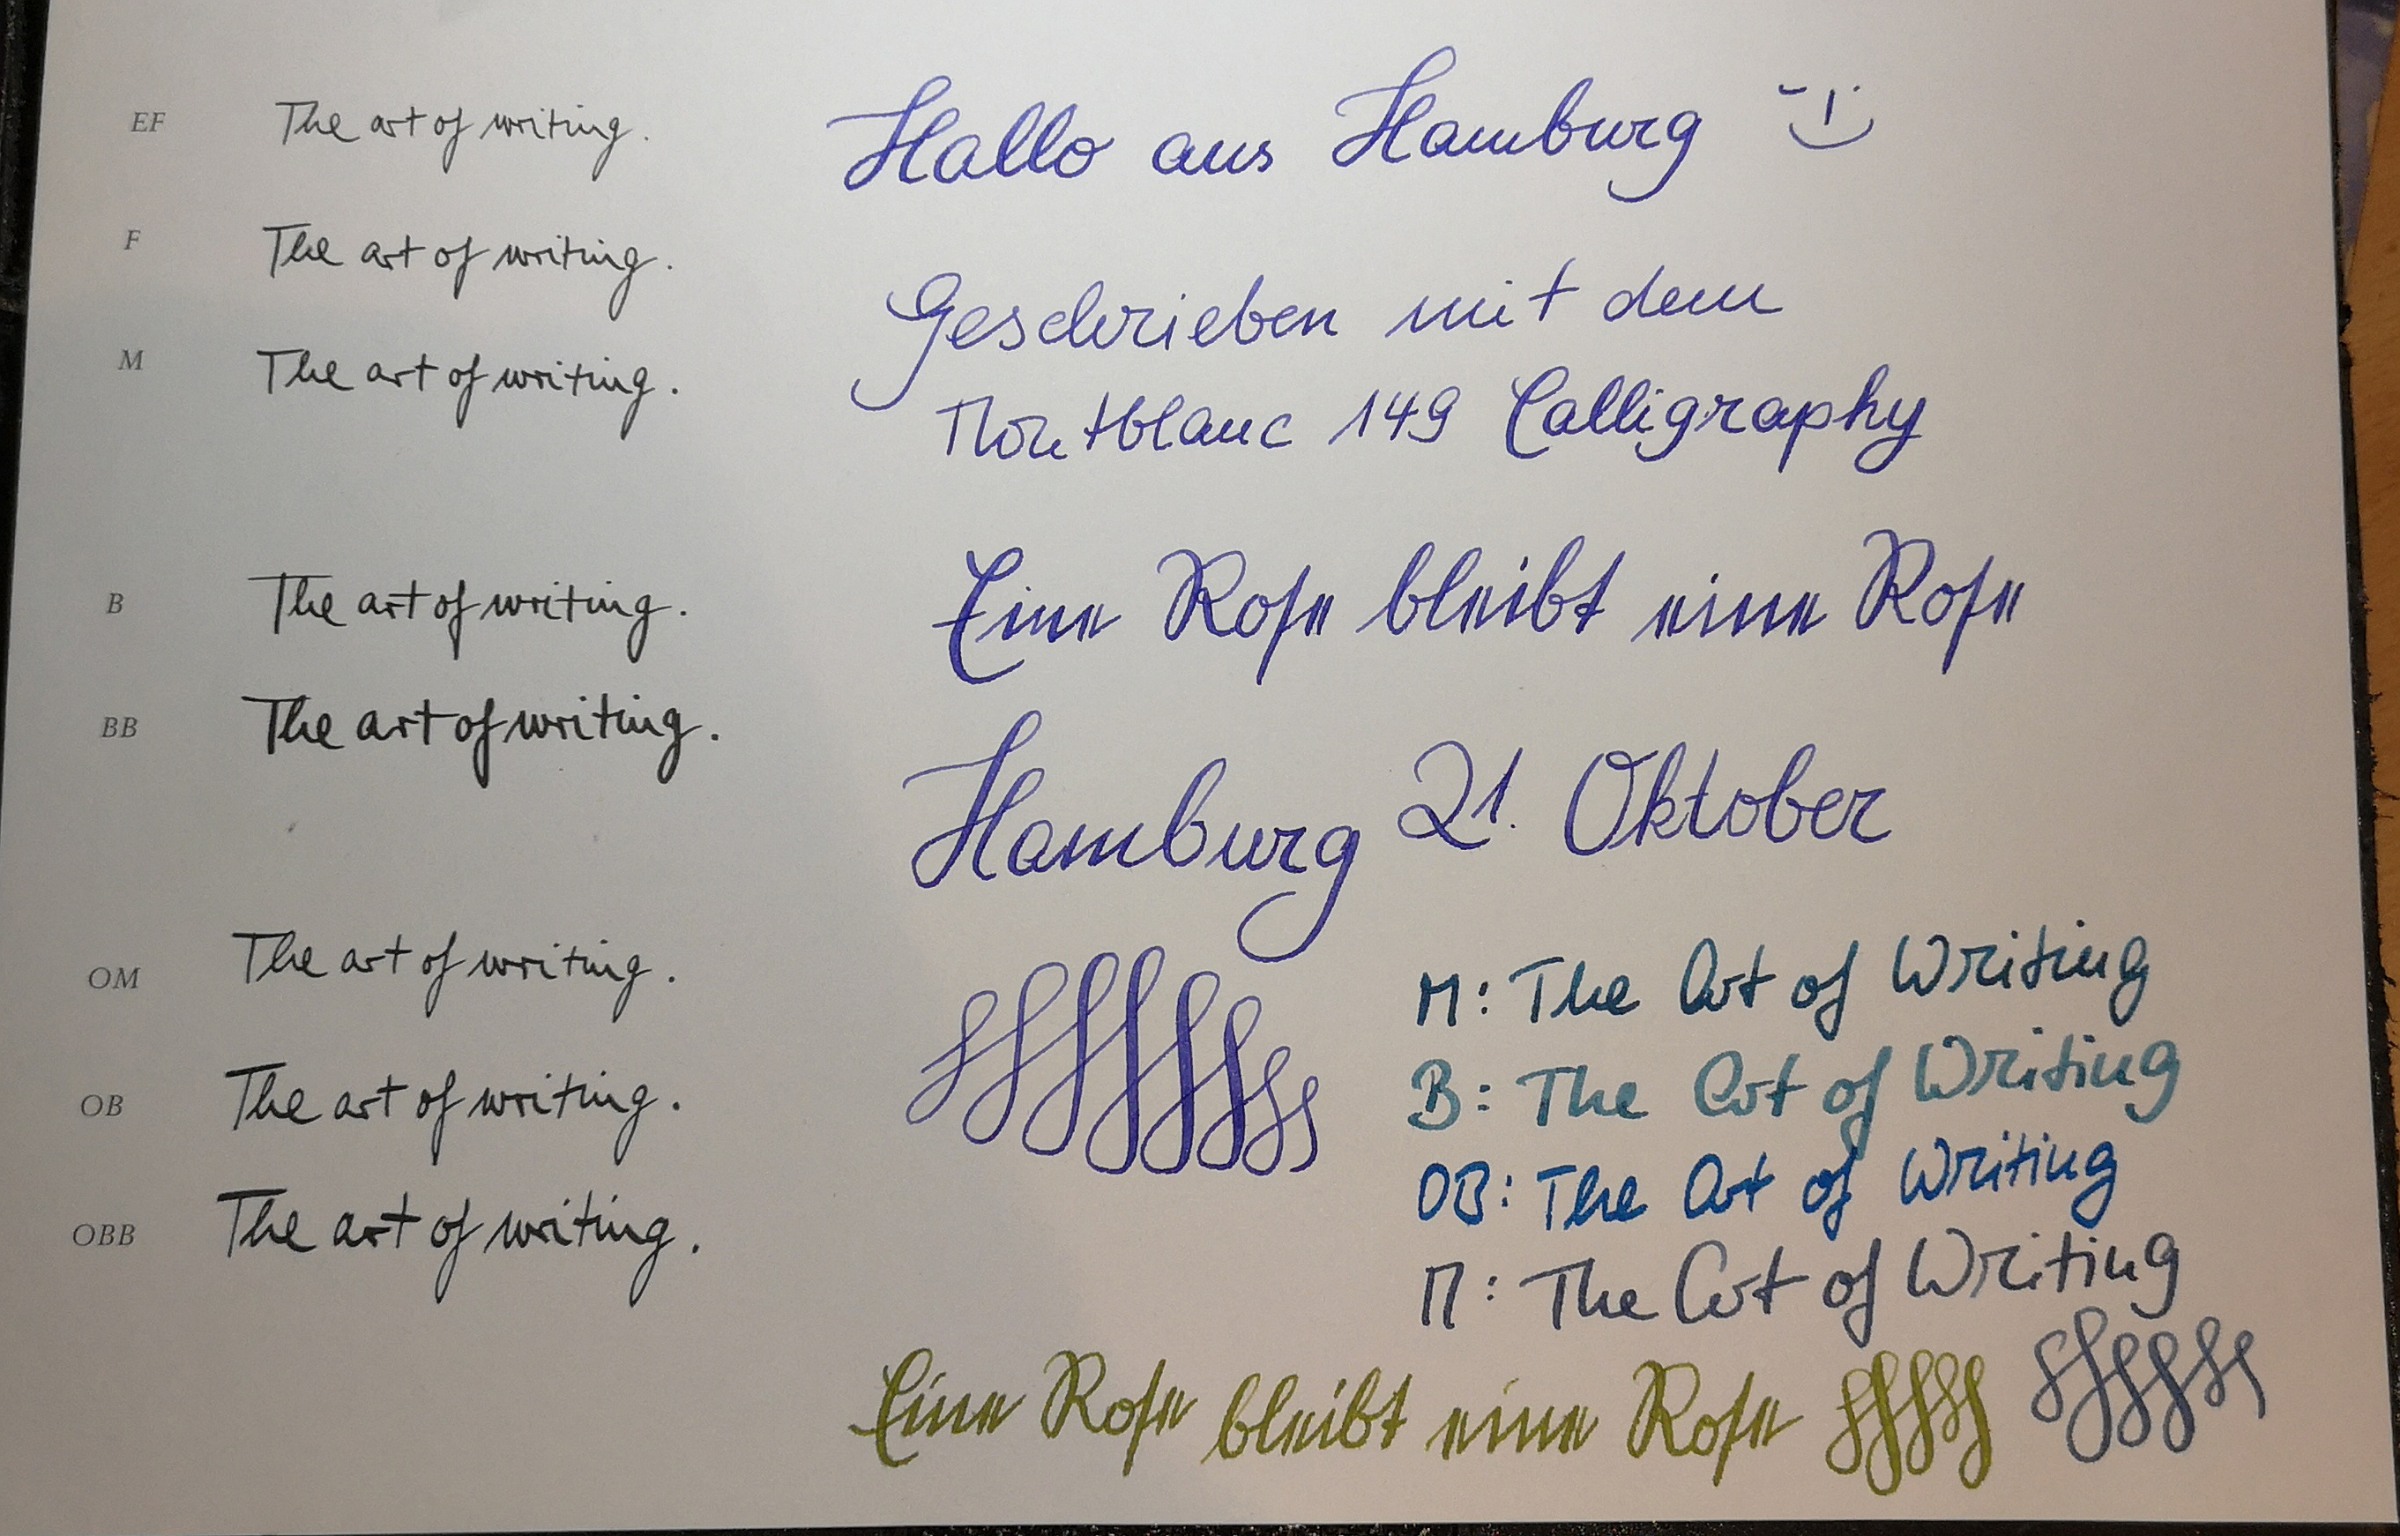 EF The art of writing.
F The art of writing.
M The art of writing.
B The art of writing.
BB The art of writing.
OM The art of writing.
OB The art of writing.
OBB The art of writing.
Hallo aus Hamburg
Geschrieben mit dem
Montblanc 149 Calligraphy
Eine Rose bleibt eine Rose
Hamburg 21. Oktober
M: The Art of Writing
B: The Art of Writing
OB: The Art of Writing
M: The Art of Writing
Eine Rose bleibt eine Rose